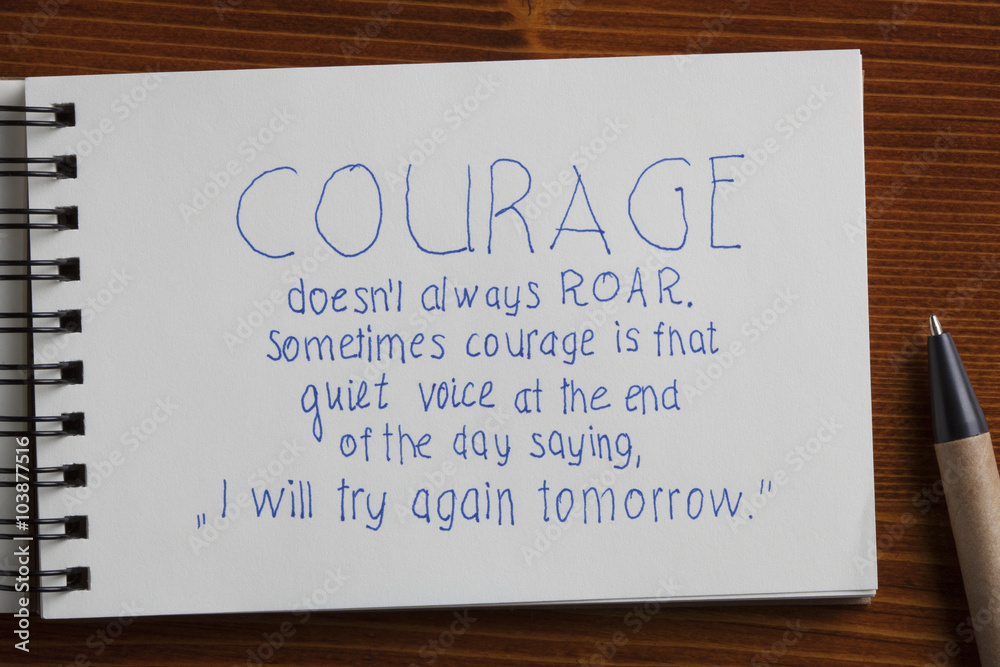 COURAGE
doesn't always ROAR.
Sometimes courage is that
quiet voice at the end
of the day saying,
„I will try again tomorrow."
Adobe Stock | #103877516